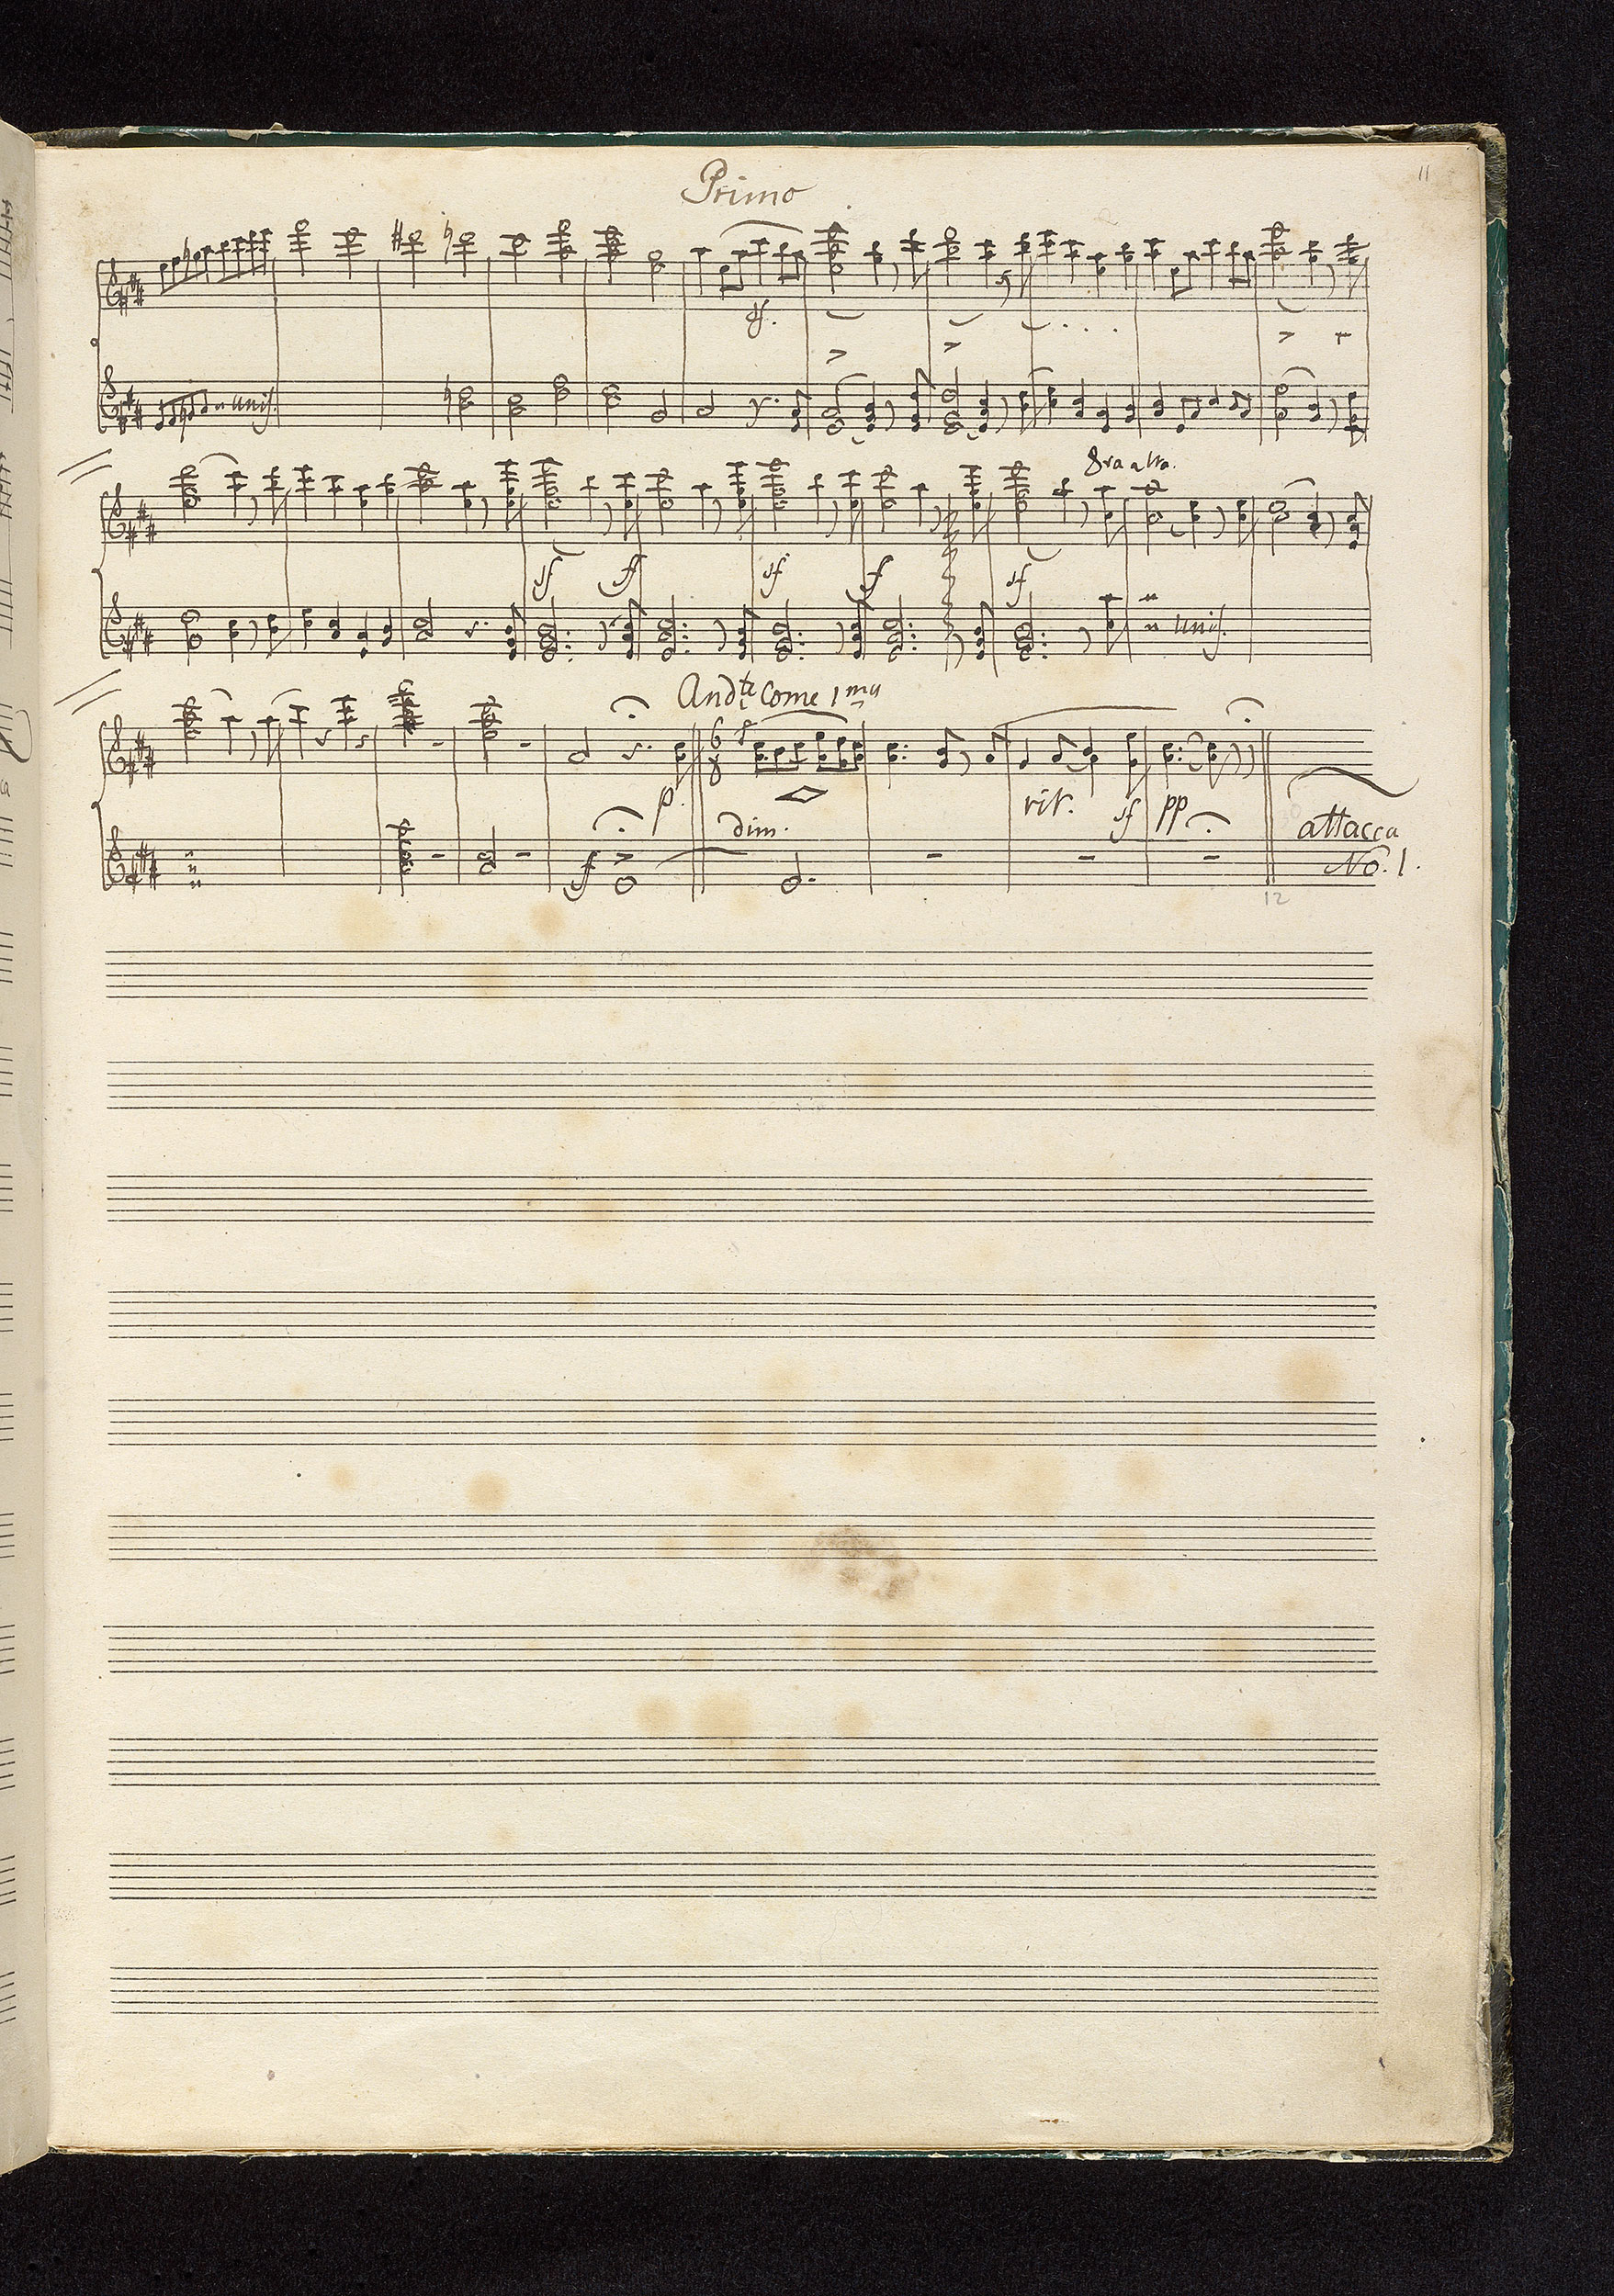 Primo
11
sf.
unis.
8va alta.
sf f sf f sf
unis.
Andte Come 1mu
6
8
p.
rit. sf pp
dim.
attacca
f
No. 1.
12